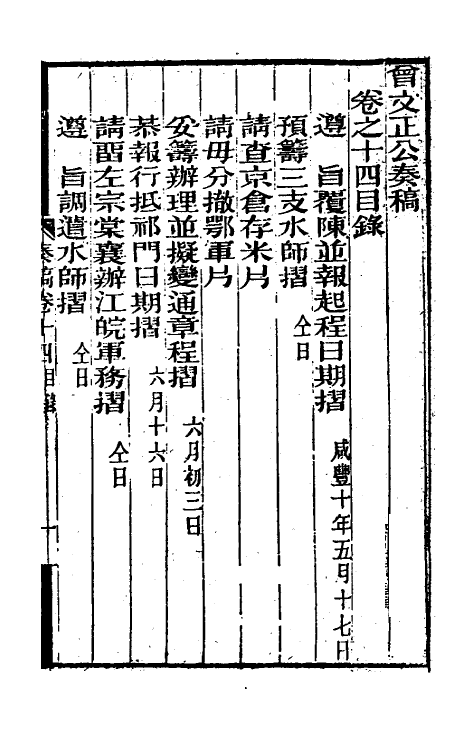 曾文正公奏稿
卷之十四目錄
遵　旨覆陳並報起程日期摺　咸豐十年五月十七日
預籌三支水師摺　仝日
請查京倉存米片
請毋分撤鄂軍片
妥籌辦理並擬變通章程摺　六月初三日
恭報行抵祁門日期摺　六月十六日
請畱左宗棠襄辦江皖軍務摺　仝日
遵　旨調遣水師摺　仝日
奏稿卷十四目錄　一